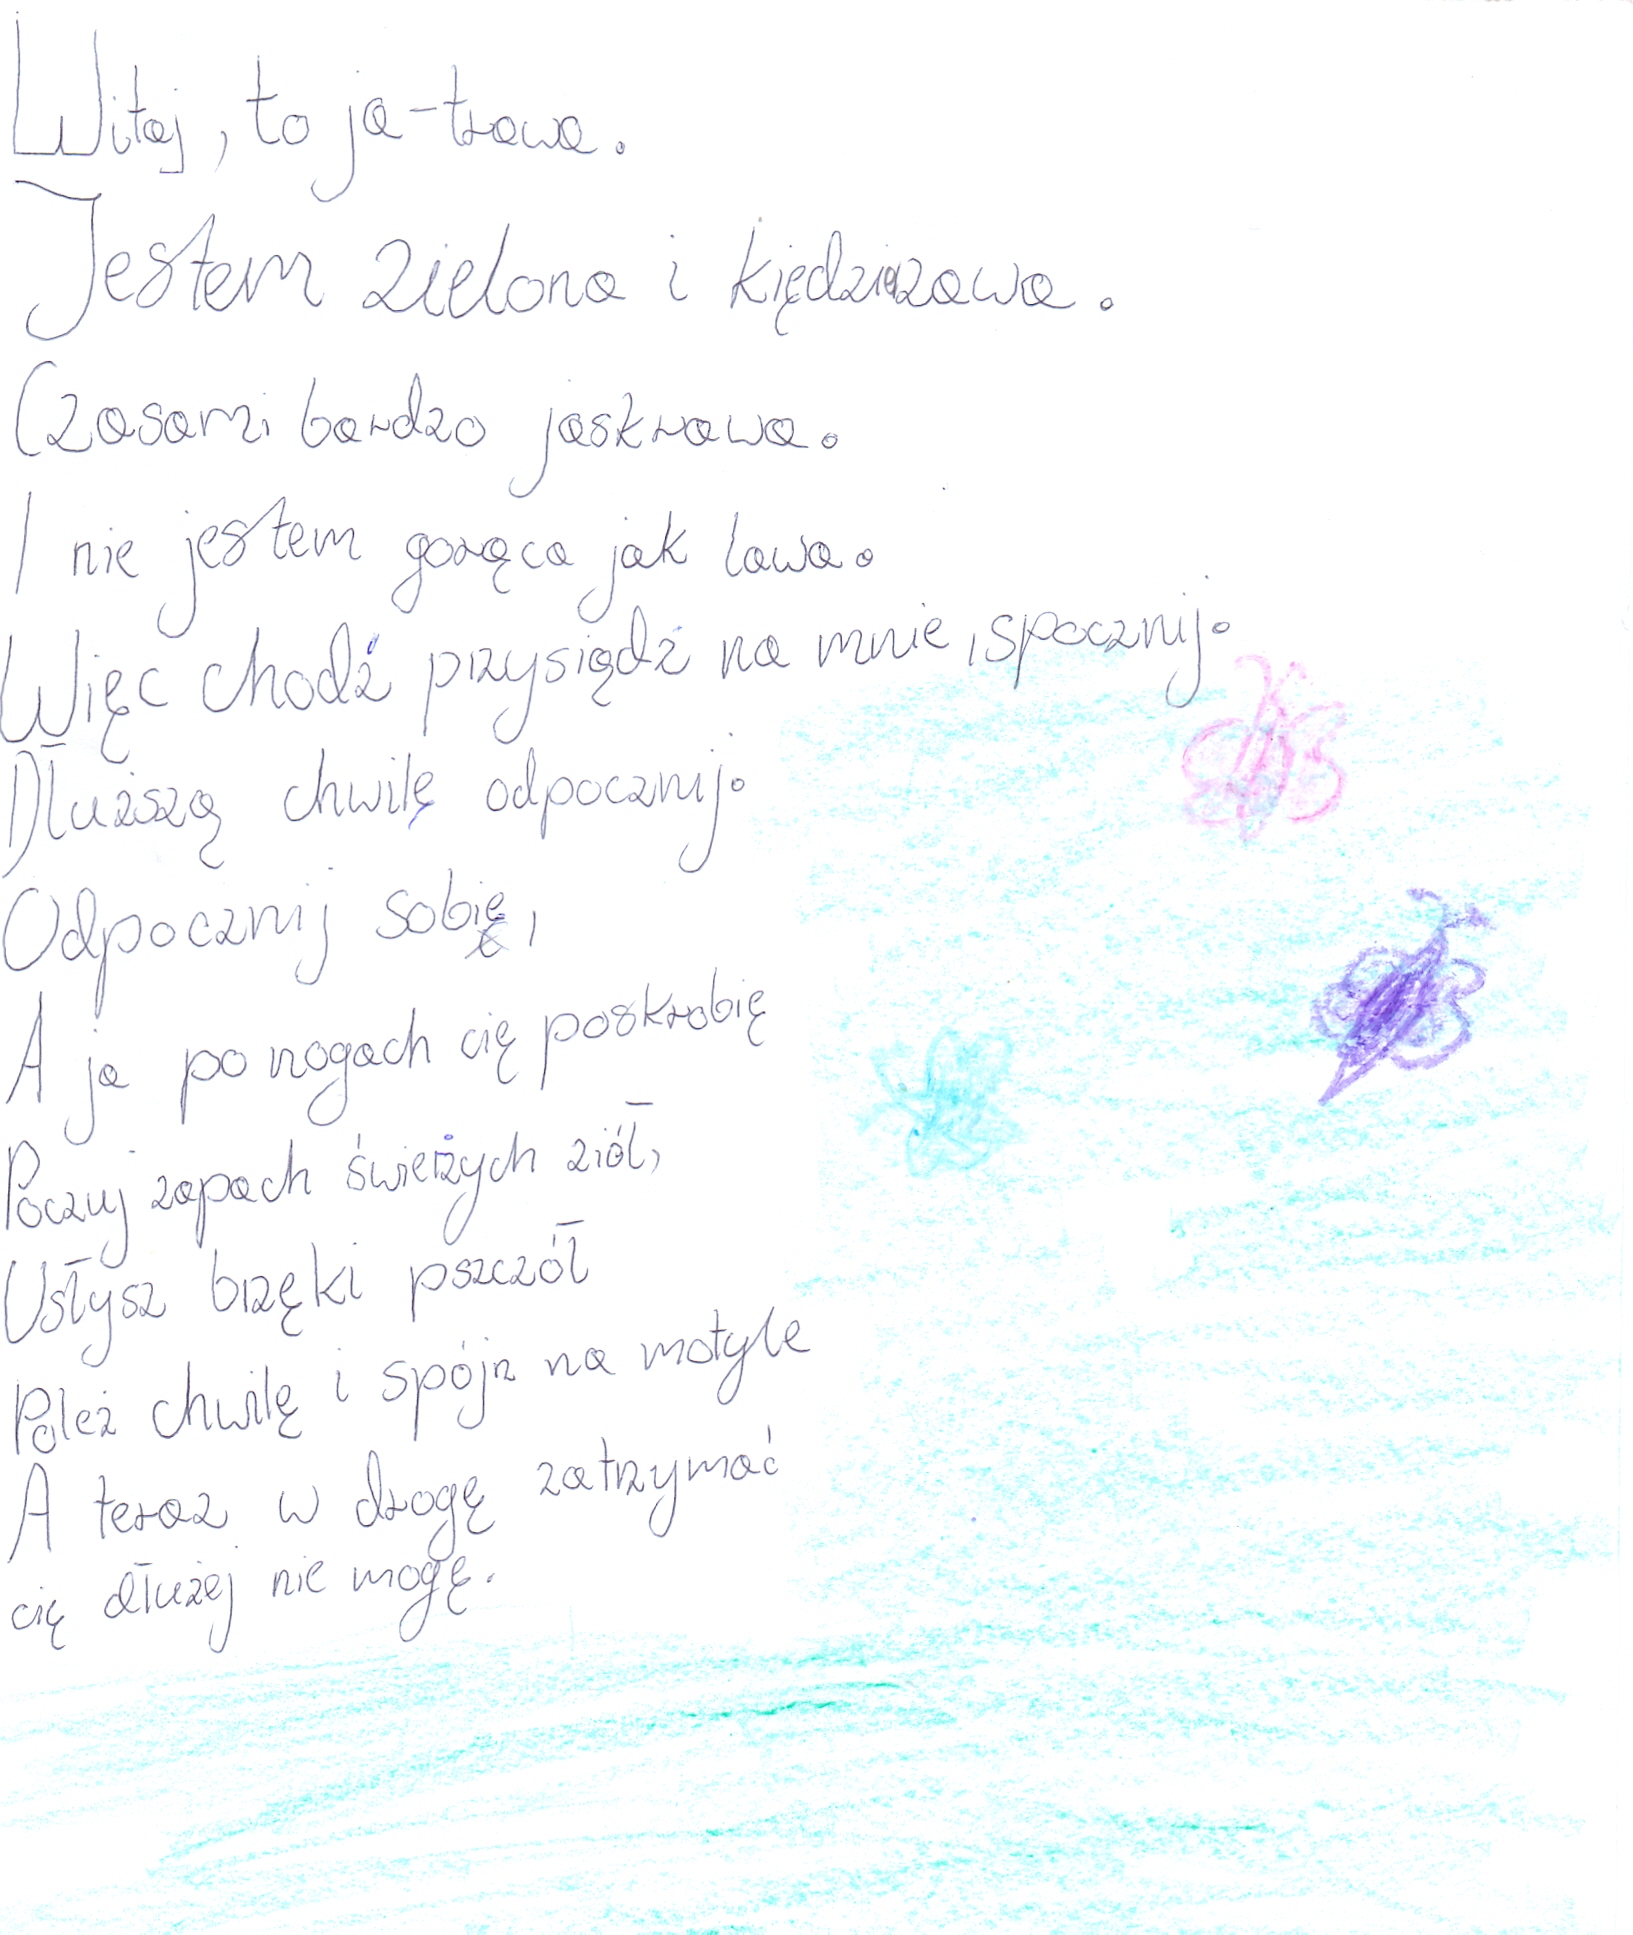 Witaj, to ja-trawa.
Jestem zielona i kiędziorzawa.
Czasami bardzo jaskrawa.
I nie jestem gorąca jak lawa.
Więc chodź przysiądź na mnie, spocznij.
Dłuższą chwilę odpocznij.
Odpocznij sobie,
A ja po nogach cię poskrobię
Poczuj zapach świeżych ziół,
Usłysz brzęki pszczół
Poleż chwilę i spójrz na motyle
A teraz w drogę zatrzymać
cię dłużej nie mogę.